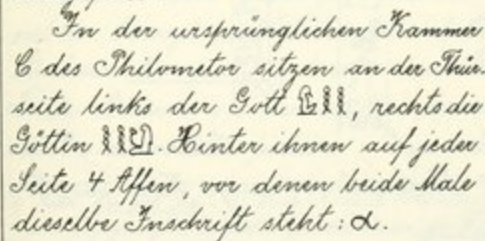 In der ursprünglichen Kammer
C des Philometor sitzen an der Thür-
seite links der Gott , rechts die
Göttin . Hinter ihnen auf jeder
Seite 4 Affen, vor denen beide Male
dieselbe Inschrift steht: α.